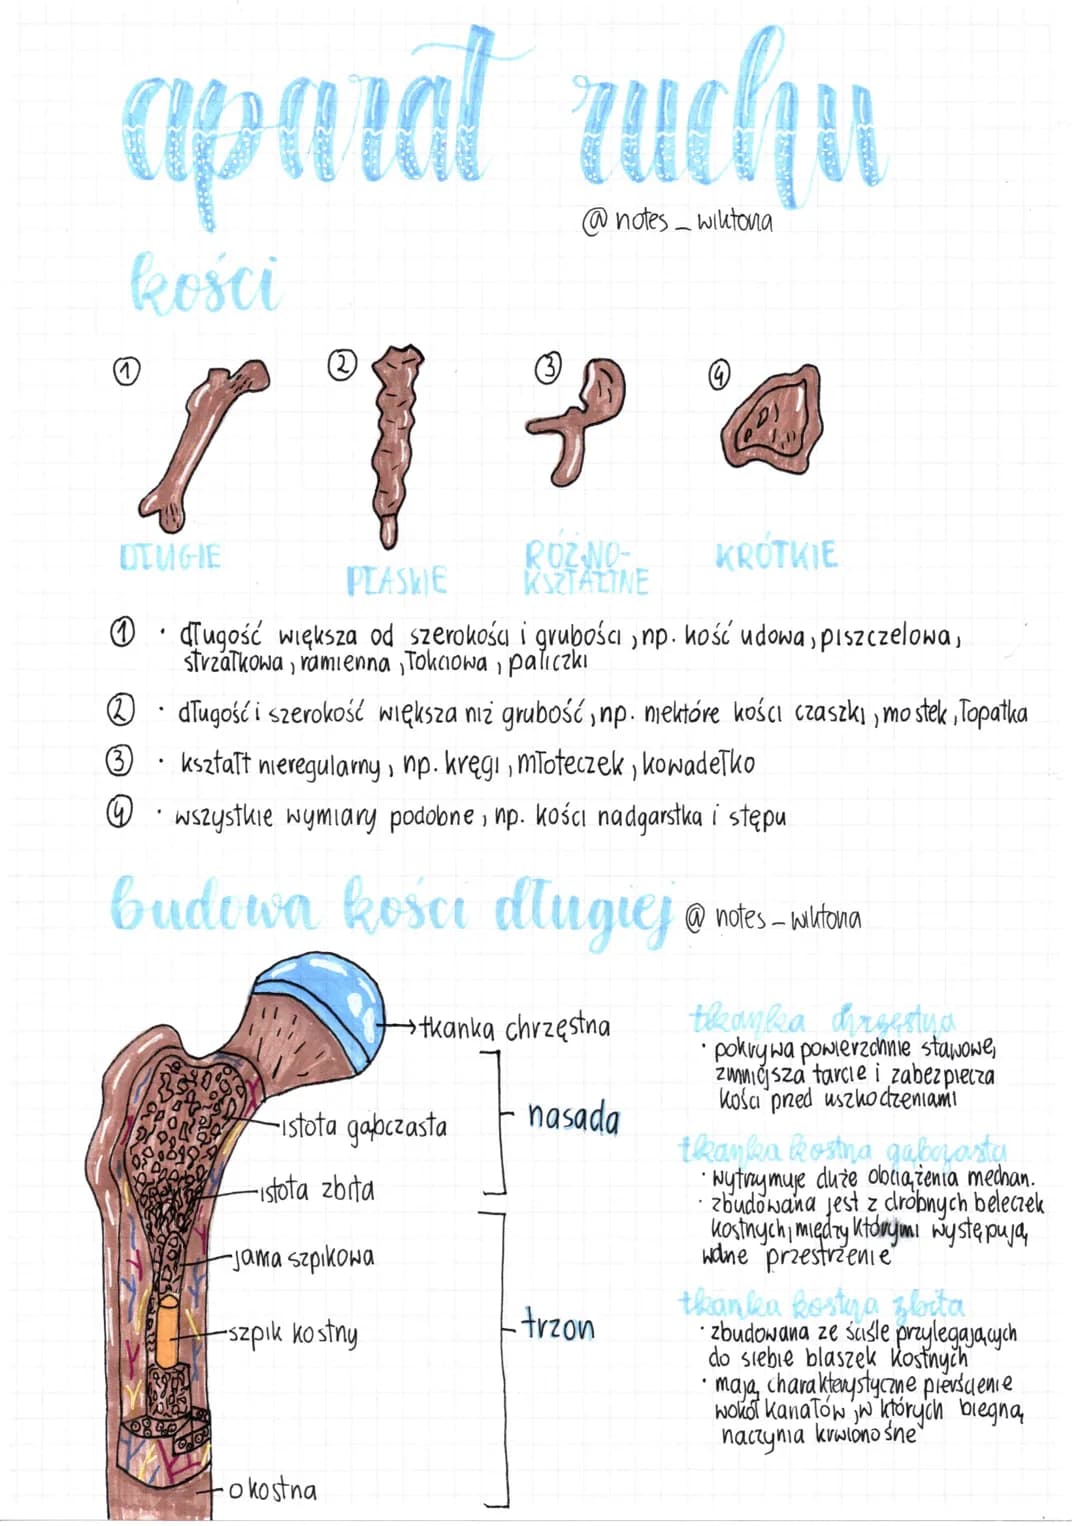 aparat ruchu
@ notes_wiktoria
kości
1 2 3 4
DŁUGIE
PŁASKIE
RÓŻNO-
KSZTAŁTNE
KRÓTKIE
1 · długość większa od szerokości i grubości, np. kość udowa, piszczelowa,
strzałkowa, ramienna, łokciowa, paliczki
2 · długość i szerokość większa niż grubość, np. niektóre kości czaszki, mostek, łopatka
3 · kształt nieregularny, np. kręgi, młoteczek, kowadełko
4 · wszystkie wymiary podobne, np. kości nadgarstka i stępu
budowa kości długiej @ notes_wiktoria
tkanka chrzęstna
istota gąbczasta
istota zbita
jama szpikowa
szpik kostny
okostna
nasada
trzon
tkanka chrzęstna
· pokrywa powierzchnie stawowe,
zmniejsza tarcie i zabezpiecza
kości przed uszkodzeniami
tkanka kostna gąbczasta
· wytrzymuje duże obciążenia mechan.
· zbudowana jest z drobnych beleczek
kostnych, między którymi występują
wolne przestrzenie
tkanka kostna zbita
· zbudowana ze ściśle przylegających
do siebie blaszek kostnych
· mają charakterystyczne pierścienie
wokół kanałów, w których biegną
naczynia krwionośne